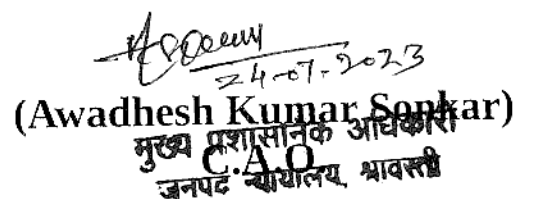 24-07-2023
(Awadhesh Kumar Sonkar)
मुख्य प्रशासनिक अधिकारी
C.A.O
जनपद न्यायालय, श्रावस्ती